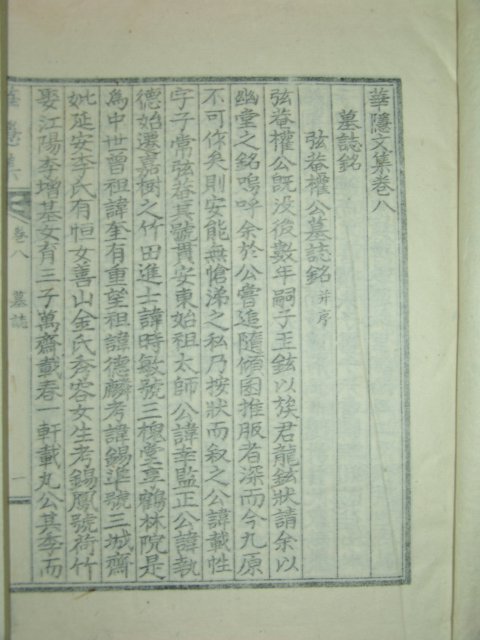 華隱文集卷八
墓誌銘
弦菴權公墓誌銘 并序
弦菴權公旣没後數年嗣子玉鉉以族君龍鉉狀請余以
幽堂之銘嗚呼余於公嘗追隨傾囷推服者深而今九原
不可作矣則安能無愴涕之私乃按狀而叙之公諱載性
字子常弦菴其號貫安東始祖太師公諱幸監正公諱執
德始還嘉樹之竹田進士諱時敏號三槐堂享鶴林院是
為中世曾祖諱奎有重望祖諱德麟考諱錫進號三城齋
妣延安李氏有恒女善山金氏秀容女生考錫鳳號荷竹
娶江陽李增基女育三子萬齋載春一軒載丸公其季而
卷八 墓誌 一